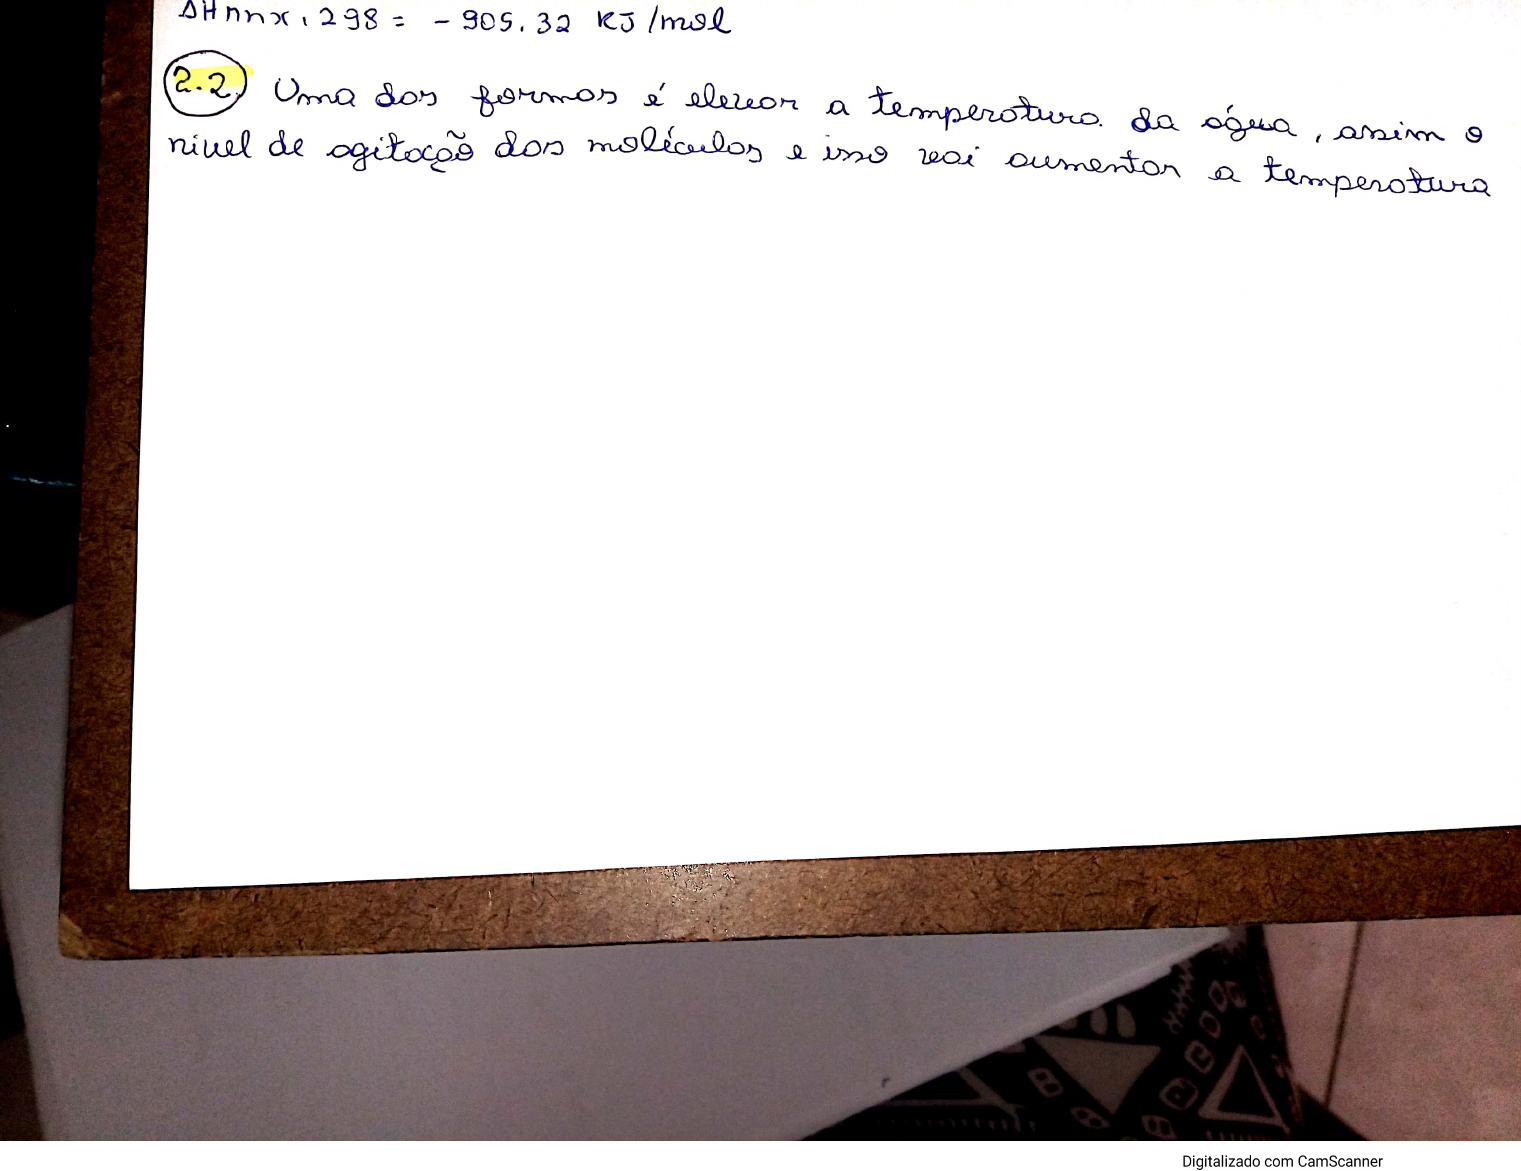 ΔHrnx, 298 = - 905.32 KJ/mol
2.2 Uma das formas é elevar a temperatura. da água, assim o
nivel de agitação das moléculas e isso vai aumentar a temperatura
Digitalizado com CamScanner